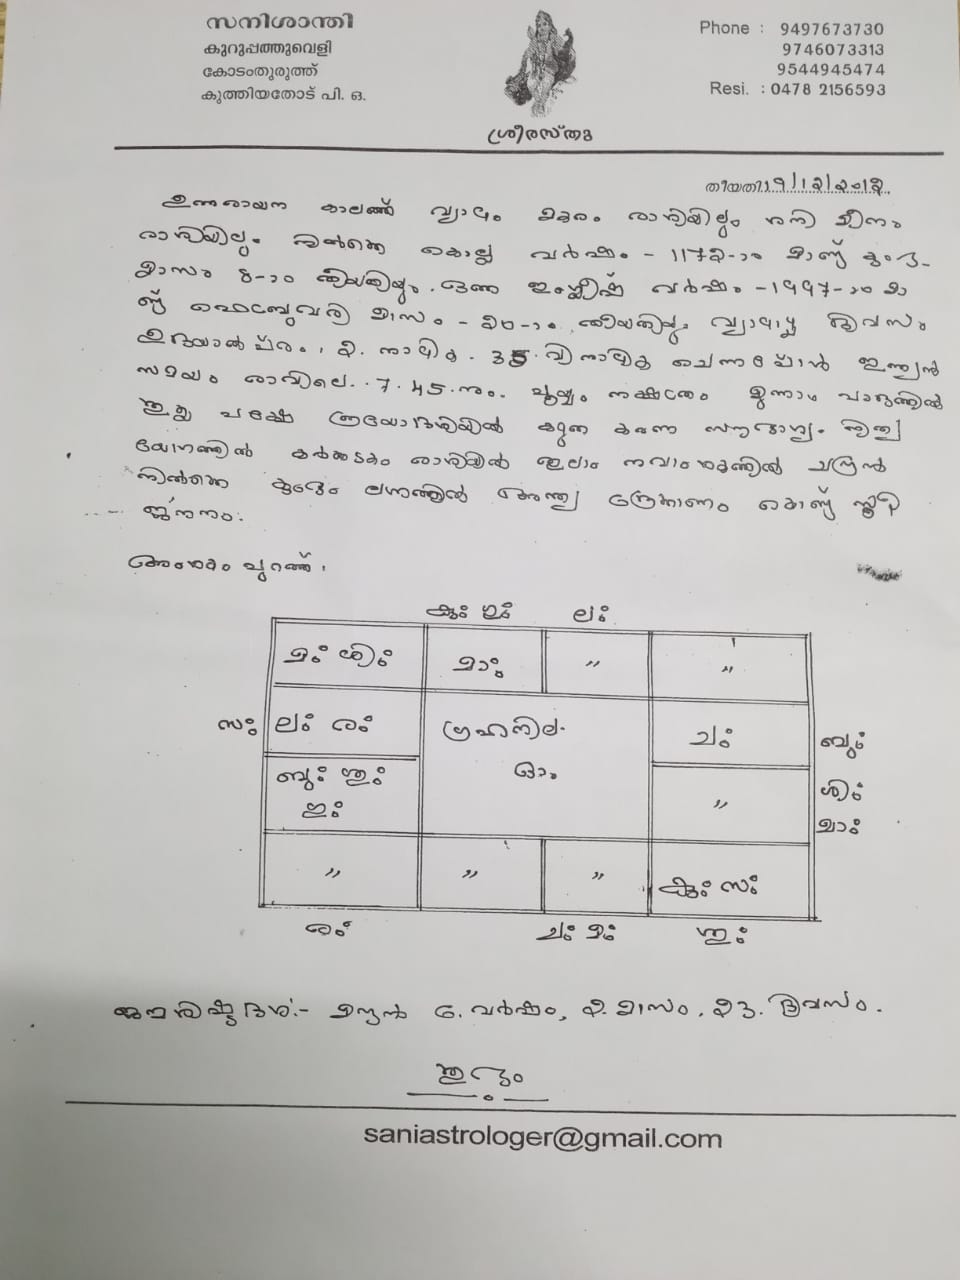 സനിശാന്തി
കുറുപ്പത്തുവെളി
കോടംതുരുത്ത്
കുത്തിയതോട് പി. ഒ.
ശ്രീരസ്തു
Phone : 9497673730
9746073313
9544945474
Resi. : 0478 2156593
തീയതി 19/12/2012
ഉത്തരായന കാലത്ത് വ്യാഴം മകരം രാശിയിലും ശനി മീനം
രാശിയിലും നിൽക്കെ കൊല്ല വർഷം - 1172-ാം മാണ്ട് കുംഭ-
മാസം 8-ാം തീയതിയും ഇംഗ്ലീഷ് വർഷം - 1997-ാം മാ
ണ്ട് ഫെബ്രുവരി മാസം - 20-ാം തീയതിയും വ്യാഴാഴ്ച ദിവസം
ഉദയാൽപരം, 2. നാഴിക. 35. വിനാഴിക ചെന്നപ്പോൾ ഇന്ത്യൻ
സമയം രാവിലെ. 7.45.നും. പൂയ്യം നക്ഷത്രം മൂന്നാം പാദത്തിൽ
പക്ഷേ ത്രയോദശിയിൽ കരണ
യോഗത്തിൽ കർക്കടകം രാശിയിൽ തുലാം നവാംശത്തിൽ ചന്ദ്രൻ
നിൽക്കെ കുംഭം ലഗ്നത്തിൽ അന്ത്യ ദ്രേക്കാണം കൊണ്ട് സ്ത്രീ
ജനനം.
അംശകം പുറത്ത്.
കും ഗും ലം
മം ശിം
മാം
"
"
സം
ലം രം
ഗ്രഹനില
ഓം
ചം
ബും
ബും ശും
ഗും
"
ശിം
മാം
"
"
"
കും സം
രം
ചം മം
ശും
ജനനശിഷ്ടദശ:- മന്ദൻ 6. വർഷം, 2. മാസം, 23. ദിവസം.
ശുഭം
saniastrologer@gmail.com